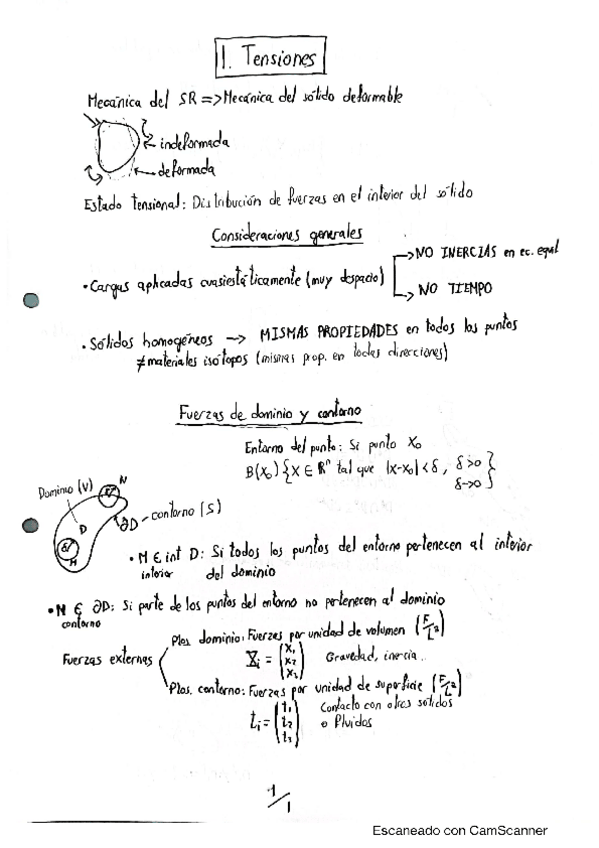 1. Tensiones
Mecánica del SR => Mecánica del sólido deformable
indeformada
deformada
Estado tensional: Distribución de fuerzas en el interior del sólido
Consideraciones generales
→ NO INERCIAS en ec. equil
• Cargas aplicadas cuasiestáticamente (muy despacio)
→ NO TIEMPO
• Sólidos homogéneos → MISMAS PROPIEDADES en todos los puntos
≠ materiales isótopos (mismas prop. en todas direcciones)
Fuerzas de dominio y contorno
Entorno del punto: Si punto X₀
B(X₀) {X ∈ ℝⁿ tal que |X-X₀| < δ, δ>0
δ→0}
N
Dominio (V)
D
∂D - contorno (S)
M
• M ∈ int D: Si todos los puntos del entorno pertenecen al interior
interior del dominio
• N ∈ ∂D: Si parte de los puntos del entorno no pertenecen al dominio
contorno
Fzas. dominio: Fuerzas por unidad de volumen (F/L³)
Fuerzas externas
X̄ᵢ = (X₁ X₂ X₃) Gravedad, inercia..
Fzas. contorno: Fuerzas por unidad de superficie (F/L²)
tᵢ = (t₁ t₂ t₃) Contacto con otros sólidos
o fluidos
1/1
Escaneado con CamScanner